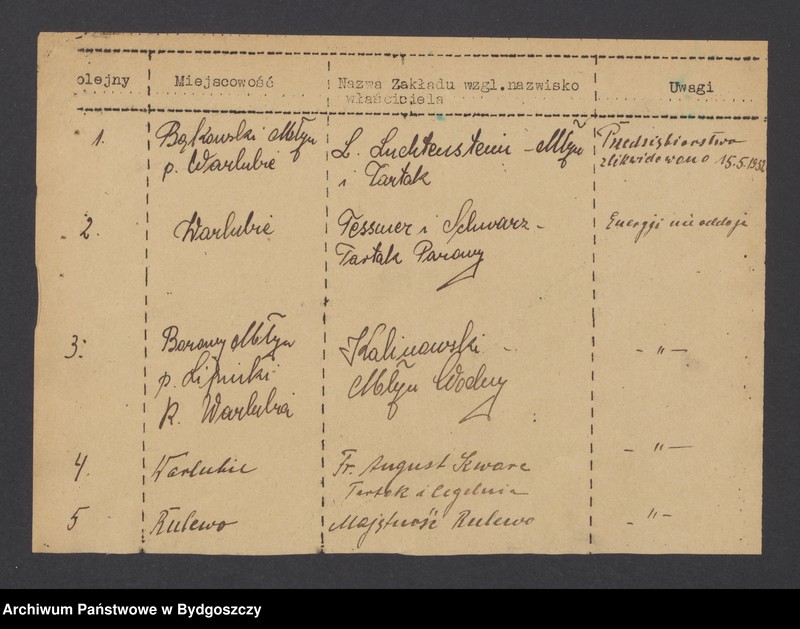 olejny Miejscowość Nazwa Zakładu wzgl.nazwisko Uwagi
właściciela
1. Bąkowski Młyn L. Luchtenstein - Młyn Przedsiębiorstwo
p. Warlubie i Tartak zlikwidowano 15.5.1932
2. Warlubie Tessmer i Schwarz - Energji nie oddaje
Tartak Parowy
3. Borowy Młyn Kalinowski - - " -
p. Lipinki Młyn Wodny
k. Warlubia
4. Warlubie Fr. August Szwarc - " -
Tartak i Cegielnia
5 Rulewo Majętność Rulewo - " -
Archiwum Państwowe w Bydgoszczy